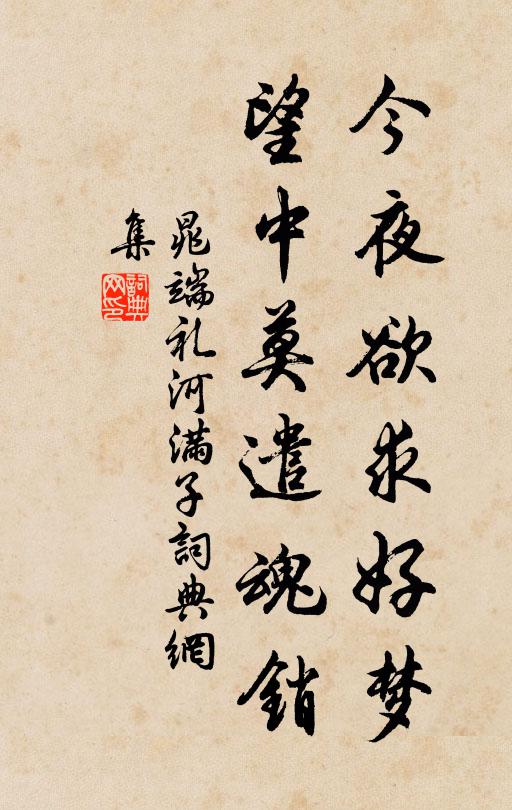 今夜欲求好梦
望中莫遣魂銷
晁端礼河满子詞典網
集
詞典网印